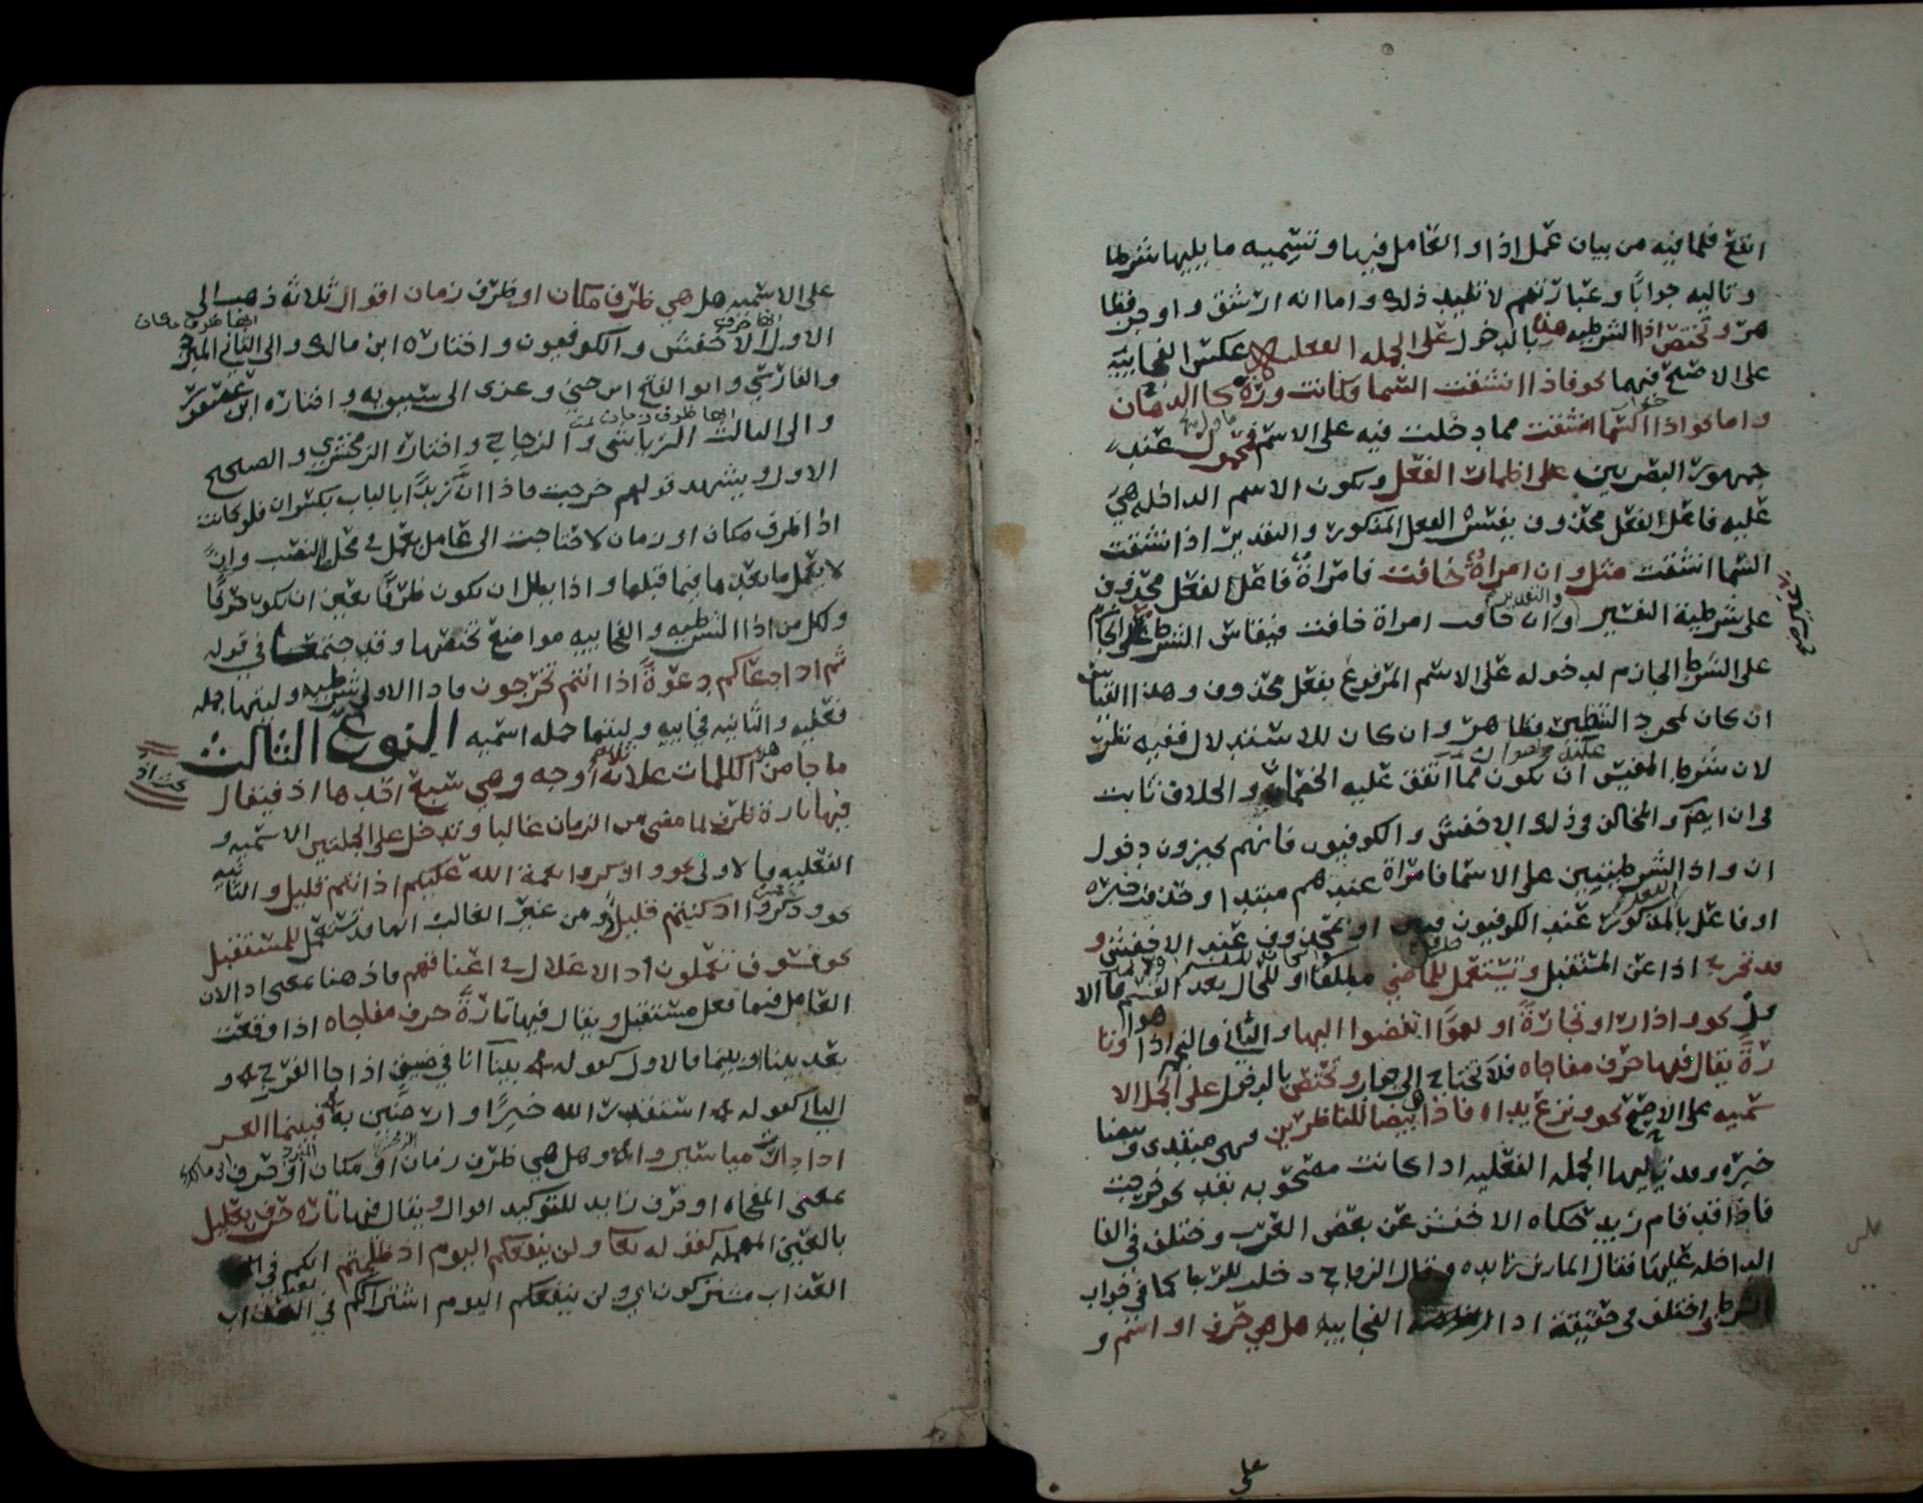 انفع فلما فيه من بيان عمل اذا والعامل فيها وتسميه ما يليها شرطا
وتاليه جوابا وعبارتهم لا تفيد ذلك واما انه ارشق واوجز فظا
هر وتختص اذا الشرطيه هذه بالدخول على الجمله الفعليه عكس الفجاييه
على الاصح فيهما نحو فاذا انشقت السما فكانت وردة كالدهان
واما نحو اذا السما انشقت مما دخلت فيه على الاسم فمحمول عند
جمهور البصريين على اظمار الفعل ويكون الاسم الداخله هي
عليه فاعلا لفعل محذوف يفسره الفعل المذكور والتقدير اذا انشقت
السما انشقت مثل وان امراة خافت فامراة فاعل لفعل محذوف
على شرطية التفسير والتقدير وان خافت امراة خافت فيقاس الشرط
على الشرط الجازم لدخوله على الاسم المرفوع بفعل محذوف وهذا القياس
ان كان لمجرد التنظير فظاهر وان كان للاستدلال ففيه نظر
لان شرط المقيس عليه ان يكون مما اتفق عليه الخصمان والخلاف ثابت
في ان ايضا والمخالف في ذلك الاخفش والكوفيون فانهم يجيزون دخول
ان واذا الشرطيتين على الاسما فامراة عندهم مبتدا وخافت خبره
او فاعل بالمذكور عند الكوفيون او بمحذوف عند الاخفش و
قد تخرج اذا عن المستقبل وتستعمل للماضي مطلقا او للحال بعد القسم فالا
ول نحو واذا راوا تجارة او لهوا انفضوا اليها والثاني والنجم اذا هوا وتا
رة يقال فيها حرف مفاجاه فلا تحتاج الى جواب وتختص بالدخول على الجمل الا
سميه على الاصح نحو ونزع يداه فاذا هي بيضا للناظرين فهي مبتدى وبيضا
خبره وقد يليها الجمله الفعليه اذا كانت مصحوبه بقد نحو خرجت
فاذا قد قام زيد حكاه الاخفش عن بعض العرب وختلف في الفا
الداخله عليها فقال المازني زايده وقال الزجاج دخلت للربط كما في جواب
الشرط واختلف في حقيقة اذا الفجاييه هل هي حرف او اسم و
على
على الاسميه هل هي ظرف مكان او ظرف زمان اقوال ثلاثه ذهب الى
الاول انها حرف الاخفش والكوفيون واختاره ابن مالك والى الثاني انها ظرف مكان المبرد
والفارسي وابو الفتح ابن جني وعزى الى سيبويه واختاره ابن عصفور
والى الثالث انها ظرف زمان الرياشي والزجاج واختاره الزمخشري والصحيح
الاول ويشهد قولهم خرجت فاذا ان زيدا بالباب بكسر ان فلو كانت
اذا ظرف مكان او زمان لاحتاجت الى عامل يعمل في محل النصب وان
لا يعمل ما بعدها فيما قبلها واذا بطل ان تكون ظرفا تعين ان تكون حرفا
ولكل من اذا الشرطيه والفجاييه مواضع تختص بها وقد جتمعتا في قوله
ثم اذا دعاكم دعوة اذا انتم تخرجون فاذا الاولى شرطيه وليتها جمله
فعليه والثانيه فجاييه وليتها جمله اسميه النوع الثالث
ما جا من الكلمات علا ثلاثة أوجه وهي سبع احدها اذ فيقال
فيها تارة ظرف لما مضى من الزمان غالبا وتدخل على الجملتين الاسميه و
الفعليه فالاولى نحو واذكروا نعمة الله عليكم اذ انتم قليل والثانيه
نحو وذكروا اذ كنتم قليلا ومن غير الغالب انها قد تستعمل للمستقبل
نحو فسوف تعلمون اذ الاغلال في اعناقهم فاذ هنا بمعنى اذا لان
العامل فيها فعل مستقبل ويقال فيها تارة حرف مفاجاه اذا وقعت
بعد بينا او بينما فالاول كقوله بينا انا في ضيق اذ جا الفرج و
الثاني كقوله استقدر الله خيرا وارضين به فبينما العسر
اذ دارت مياسير وهل هي ظرف زمان او مكان او حرف
بمعنى المفاجاه او حرف زايد للتوكيد اقوال ويقال فيها تاره حرف تعليل
بالعين المهمله كقوله تعا ولن ينفعكم اليوم اذ ظلمتم انكم في
العذاب مشتركون اي ولن ينفعكم اليوم اشتراككم في العذاب